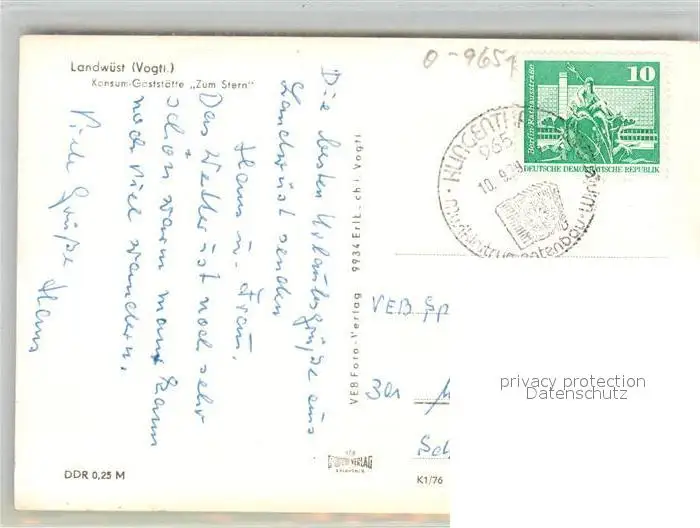 Landwüst (Vogtl.)
Konsum-Gaststätte „Zum Stern"
Die besten Urlaubsgrüße aus
Landwüst senden
Hans u. Frau.
Das Wetter ist noch sehr
schön warm man kann
noch viel wandern.
Viele Grüße Hans
DDR 0,25 M
VEB Foto-Verlag 9934 Erlb.-ch i. Vogtl.
K1/76
0-9651
10
Berlin-Rathausstraße
DEUTSCHE DEMOKRATISCHE REPUBLIK
KLINGENTHAL
965
10.9.
VEB
privacy protection
Datenschutz